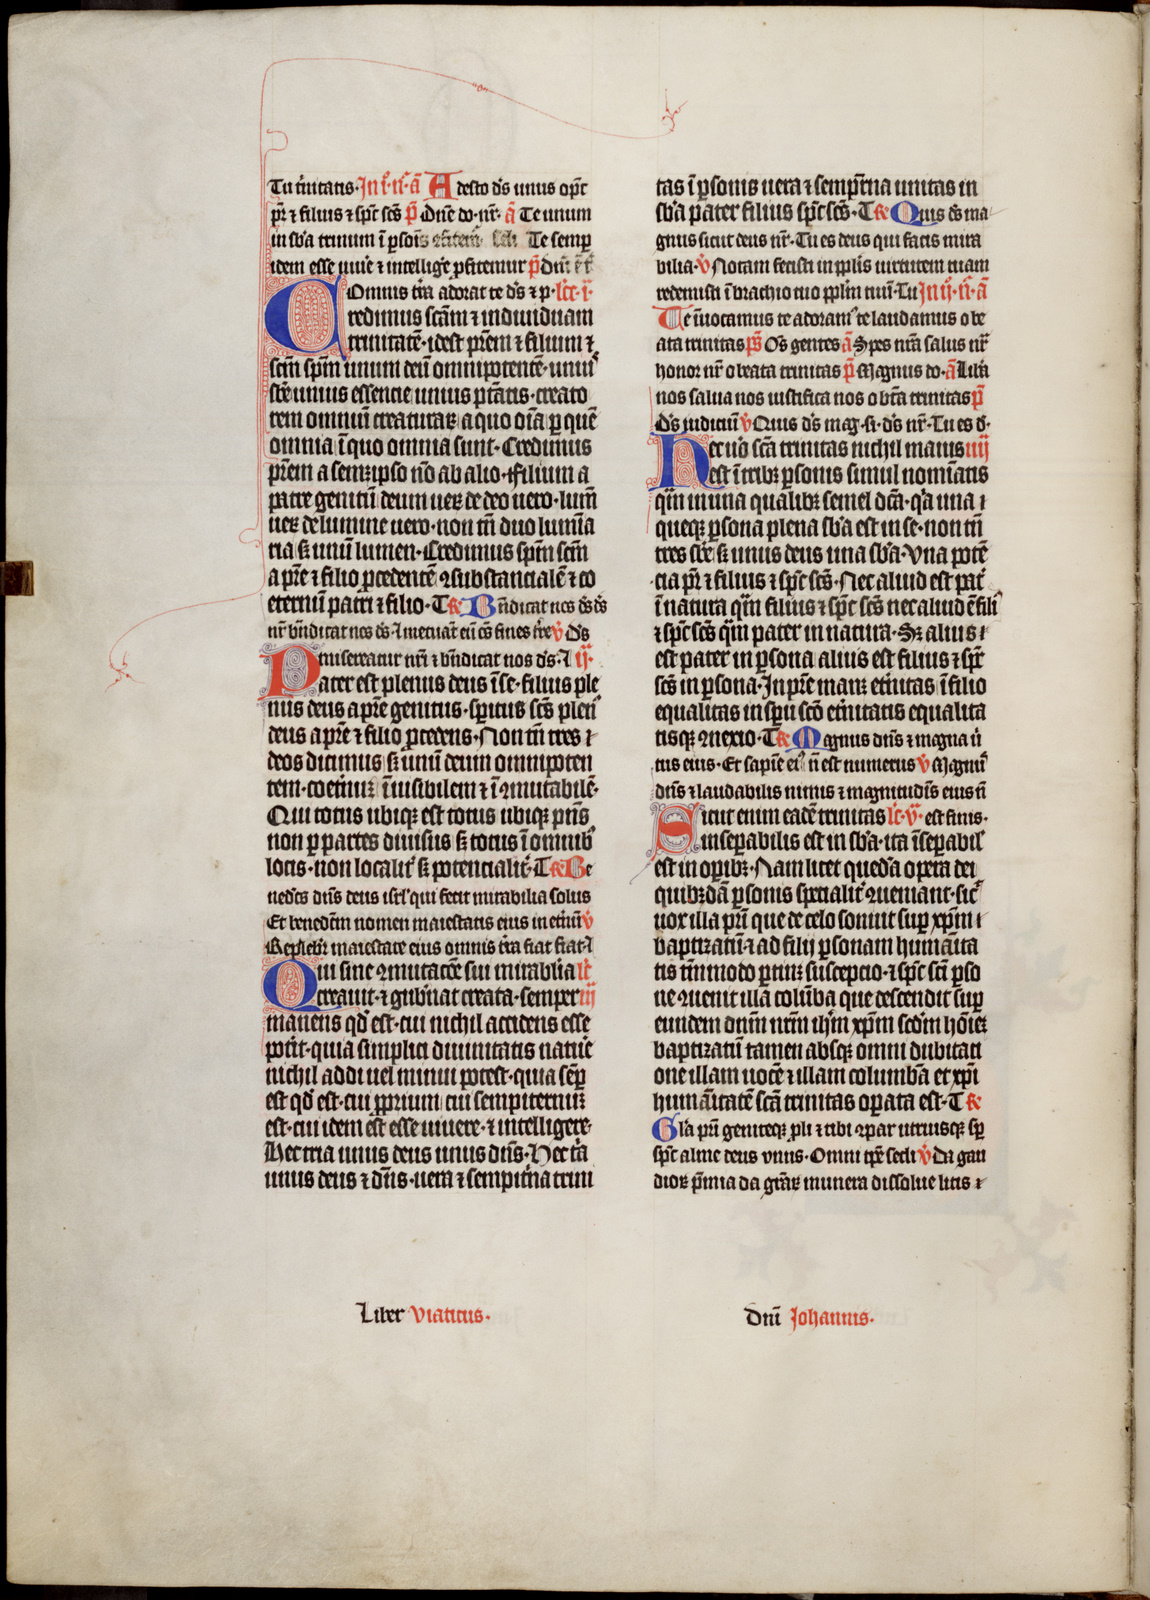 Tu trinitatis· In p͛·n͛·ā Adesto ds̄ unus op̄c
pr̄ ⁊ filius ⁊ sp̄c sc̄s p̄ Dn̄e do·nr̄· ā Te unum
in sb̄a trinum ī ꝑsoīs Te semꝑ
idem esse uiuē ⁊ intellige ꝓfitemur p̄ Dn̄i
Omnis tr̄a adorat te ds̄ ⁊ p· lcc̄·i·
Credimus sc̄am ⁊ indiuiduam
trinitatē· idest pr̄em ⁊ filium ⁊
sc̄m sp̄m unum deū omnipotentē· uniꝰ
sb̄e unius essencie unius pt̄atis· creato
rem omniū creaturaꝝ a quo oīa ꝑ quē
omnia ī quo omnia sunt· Credimus
pr̄em a semꝫipso nō ab alio· Filium a
patre genitū deum ueꝝ de deo uero· lum̄
ueꝝ de lumine uero· non tn̄ duo lumīa
ria sꝫ unū lumen· Credimus sp̄m sc̄m
a pr̄e ⁊ filio ꝓcedentē ꝯsubstancialē ⁊ co
eternū patri ⁊ filio· T R Bn̄dicat nos ds̄ ds̄
nr̄ bn̄dicat nos ds̄· ⁊ metuāt eū oēs fines tr̄e v̄ Ds̄
misereatur nr̄i ⁊ bn̄dicat nos ds̄· ⁊ ij·
Pater est plenus deus ī se· filius ple
nus deus a pr̄e genitus· sp̄itus sc̄s plenꝰ
deus a pr̄e ⁊ filio ꝓcedens· Non tn̄ tres ⁊
deos dicimus sꝫ unū deum omnipoten
tem· coet̄nū īuisibilem ⁊ īꝯmutabilē·
Qui totus ubiqꝫ est totus ubiqꝫ pn̄s
non ꝑ partes diuisus sꝫ totus ī omnibꝰ
locis· non localit͛ sꝫ potencialit͛· T R Be
nedc̄s dn̄s deus isr̄l' qui fecit mirabilia solus
Et benedc̄m nomen maiestatis eius in et̄nū v̄
Replebit͛ maiestate eius omnis tr̄a fiat fiat· ⁊
Qui sine ꝯmutacōe sui mirabilia lc̄
creauit· ⁊ gub̄nat creata· semper iij
manens qd̄ est· cui nichil accidens esse
potīt· quia simplici diuinitatis natur̄e
nichil addi uel minui potest· quia semꝑ
est qd̄ est· cui ꝓprium cui sempiternū
est· cui idem est esse uiuere· ⁊ intelligere·
Hec tria unus deus unus dn̄s· Hec tīa
unus deus ⁊ dn̄s· uera ⁊ sempit̄na trini
tas ī ꝑsonis uera ⁊ sempīt̄na unitas in
sb̄a pater filius sp̄c sc̄s· T R Quis ds̄ ma
gnus sicut deus nr̄· Tu es deus qui facis mira
bilia· v̄ Notam fecisti in pp̄lis uirtutem tuam
redemisti ī brachio tuo pp̄lm tuū· Tu In ij·n͛·ā
Te īuocamus te adoramꝰ te laudamus o be
ata trinitas ps̄ Oēs gentes ā Spes nr̄a salus nr̄
honor nr̄ o beata trinitas p̄ Magnus do· ā Lib̄a
nos salua nos iustifica nos o bt̄a trinitas p̄
Ds̄ iudiciū v̄ Quis ds̄ mag·si·ds̄ nr̄· Tu es d·
Hec uō sc̄a trinitas nichil maius iiij
est ī tribꝫ ꝑsonis simul nomīatis
qm̄ in una qualibꝫ semel dc̄a· qa una ⁊
queqꝫ ꝑsona plena sb̄a est in se· non tn̄
tres sb̄e sꝫ unus deus una sb̄a· Vna potē
cia pr̄ ⁊ filius ⁊ sp̄c sc̄s· Nec aliud est pat͛
ī natura qm̄ filius ⁊ sp̄c sc̄s nec aliud ē filiꝰ
⁊ sp̄c sc̄s qm̄ pater in natura· Sꝫ alius ⁊
est pater in ꝑsona alius est filius ⁊ sp̄c
sc̄s in ꝑsona· In pr̄e manꝫ et̄nitas ī filio
equalitas in sp̄u sc̄o et̄nitatis equalita
tisqꝫ ꝯnexio· T R Magnus dn̄s ⁊ magna ū
tus eius· Et sapīe eiꝰ n̄ est numerus v̄ Magnꝰ
dn̄s ⁊ laudabilis nimis ⁊ magnitudīs eius n̄
Sicut enim eadē trinitas lc̄·v̄· est finis·
inseꝑabilis est in sb̄a· ita īseꝑabil'
est in oꝑibꝫ· Nam licet quedā oꝑera dei
quibꝫdā ꝑsonis specialit͛ ꝯueniant· sic̄
uox illa pr̄i que de celo sonuit suꝑ xp̄m ⁊
baptizatū ⁊ ad filij ꝑsonam humāita
tis tn̄modo ꝑtinꝫ suscepcio· ⁊ sp̄c sc̄i ꝑso
ne ꝯuenit illa colūba que descendit suꝑ
eundem dn̄m nr̄m ih̄m xp̄m scd̄m hōieꝫ
baptizatū tamen absqꝫ omni dubitati
one illam uocē ⁊ illam columbā et xp̄i
humāitatē sc̄a trinitas oꝑata est· T R
Gl̄a pr̄i geniteqꝫ ꝓli ⁊ tibi ꝯpar utriusqꝫ sꝑ
sp̄c alme deus unus· Omni tp̄e secl̄i v̄ Da gau
dioꝝ p̄mia da gr̄aꝝ munera dissolue litis ⁊
Liber Viaticus·
Dn̄i Johannis·